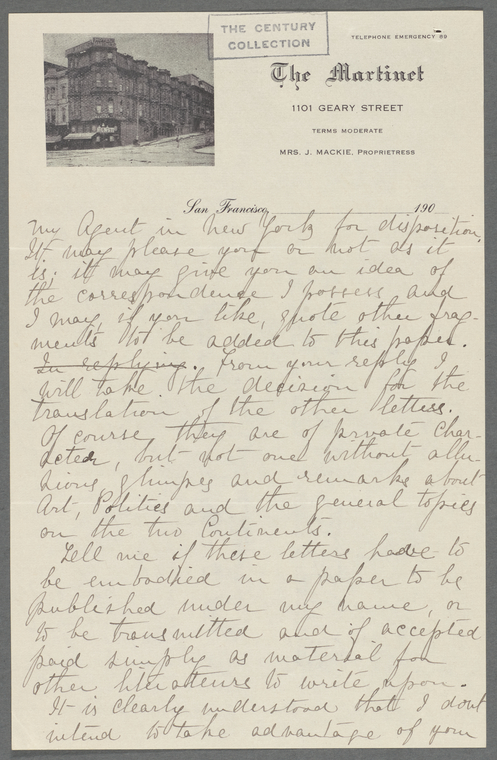 THE CENTURY
COLLECTION
TELEPHONE EMERGENCY 89
The Martinet
1101 GEARY STREET
TERMS MODERATE
MRS. J. MACKIE, PROPRIETRESS
San Francisco, 190
my Agent in New York for disposition.
It may please you or not as it
is; it may give you an idea of
the correspondence I possess and
I may, if you like, quote other frag-
ments to be added to this paper.
In replying. From your reply I
will take the decision for the
translation of the other letters.
Of course they are of private char-
acter, but not one without allu-
sions, glimpses and remarks about
Art, Politics and the general topics
on the two Continents.
Tell me if these letters have to
be embodied in a paper to be
published under my name, or
to be transmitted and if accepted
paid simply as material for
other literateurs to write upon.
It is clearly understood that I dont
intend to take advantage of your